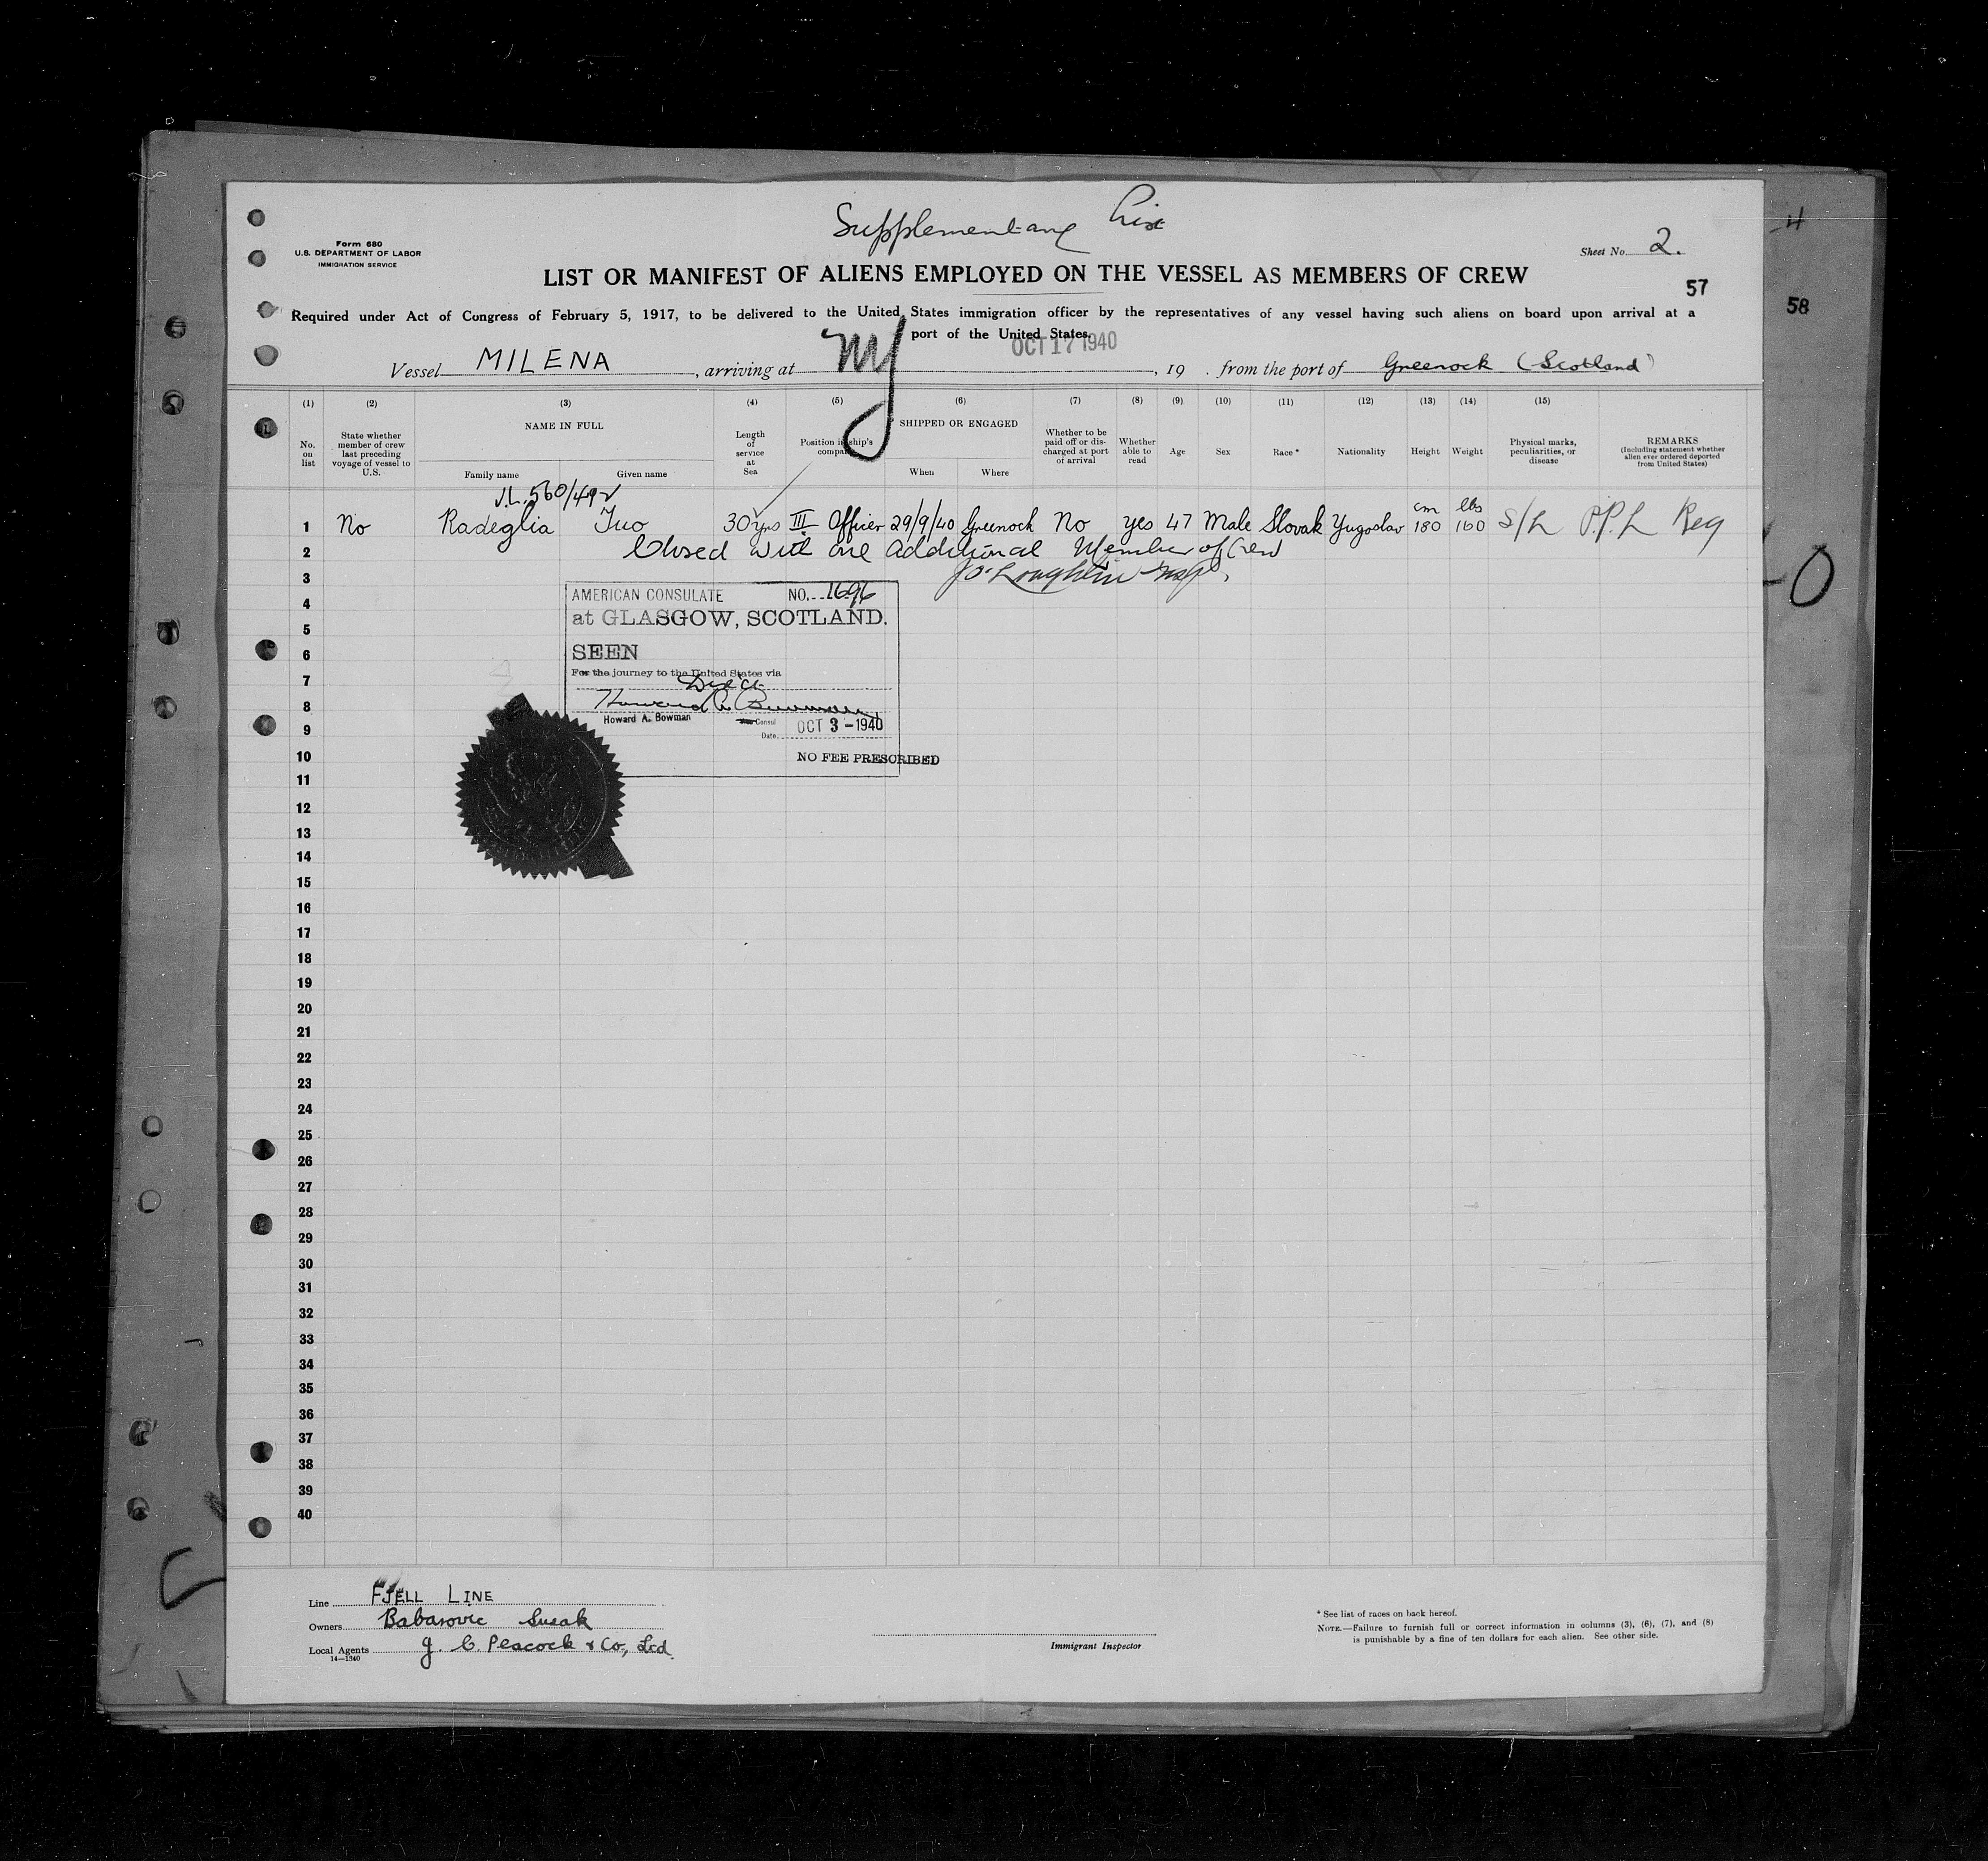 Supplementary List
Form 680
U.S. DEPARTMENT OF LABOR
IMMIGRATION SERVICE
Sheet No. 2.
LIST OR MANIFEST OF ALIENS EMPLOYED ON THE VESSEL AS MEMBERS OF CREW
57
58
Required under Act of Congress of February 5, 1917, to be delivered to the United States immigration officer by the representatives of any vessel having such aliens on board upon arrival at a
port of the United States.
OCT 17 1940
Vessel MILENA, arriving at NY, 19 . from the port of Greenock (Scotland)
(1) (2) (3) (4) (5) (6) (7) (8) (9) (10) (11) (12) (13) (14) (15)
No. on list
State whether member of crew last preceding voyage of vessel to U.S.
NAME IN FULL
Family name Given name
Length of service at Sea
Position in ship's company
SHIPPED OR ENGAGED
When Where
Whether to be paid off or discharged at port of arrival
Whether able to read
Age
Sex
Race *
Nationality
Height
Weight
Physical marks, peculiarities, or disease
REMARKS
(Including statement whether alien ever ordered deported from United States)
560/492
cm lbs
1 No Radeglia Ivo 30 yrs III Officer 29/9/40 Greenock No yes 47 Male Slovak Yugoslav 180 160 S/L P.P.L Reg
2 Closed with one additional Member of Crew
3 J O'Loughlin Insp.
4
5
6
7
8
9
10
11
12
13
14
15
16
17
18
19
20
21
22
23
24
25
26
27
28
29
30
31
32
33
34
35
36
37
38
39
40
AMERICAN CONSULATE NO. 1696
at GLASGOW, SCOTLAND.
SEEN
For the journey to the United States via
Direct
Howard A. Bowman
Howard A. Bowman Vice Consul
Date OCT 3 - 1940
NO FEE PRESCRIBED
Line FJELL LINE
Owners Babarovic Susak
Local Agents J. C. Peacock & Co, Ltd.
14—1340
Immigrant Inspector
* See list of races on back hereof.
NOTE.—Failure to furnish full or correct information in columns (3), (6), (7), and (8)
is punishable by a fine of ten dollars for each alien. See other side.